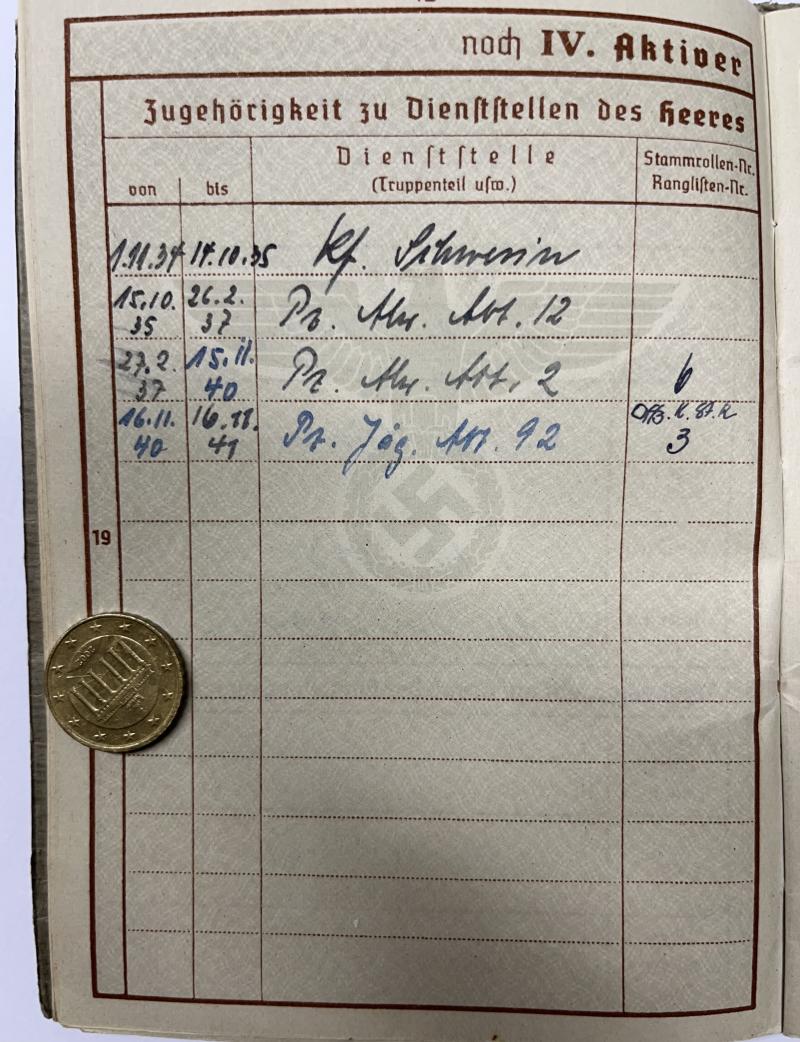 noch IV. Aktiver
Zugehörigkeit zu Dienststellen des Heeres
von bis Dienststelle (Truppenteil usw.) Stammrollen-Nr. Ranglisten-Nr.
1.11.34 14.10.35 Kf. Schwerin
15.10.35 26.2.37 Pz. Abw. Abt. 12
27.2.37 15.11.40 Pz. Abw. Abt. 2 6
16.11.40 16.11.41 Pz. Jäg. Abt. 92 3
19
2002